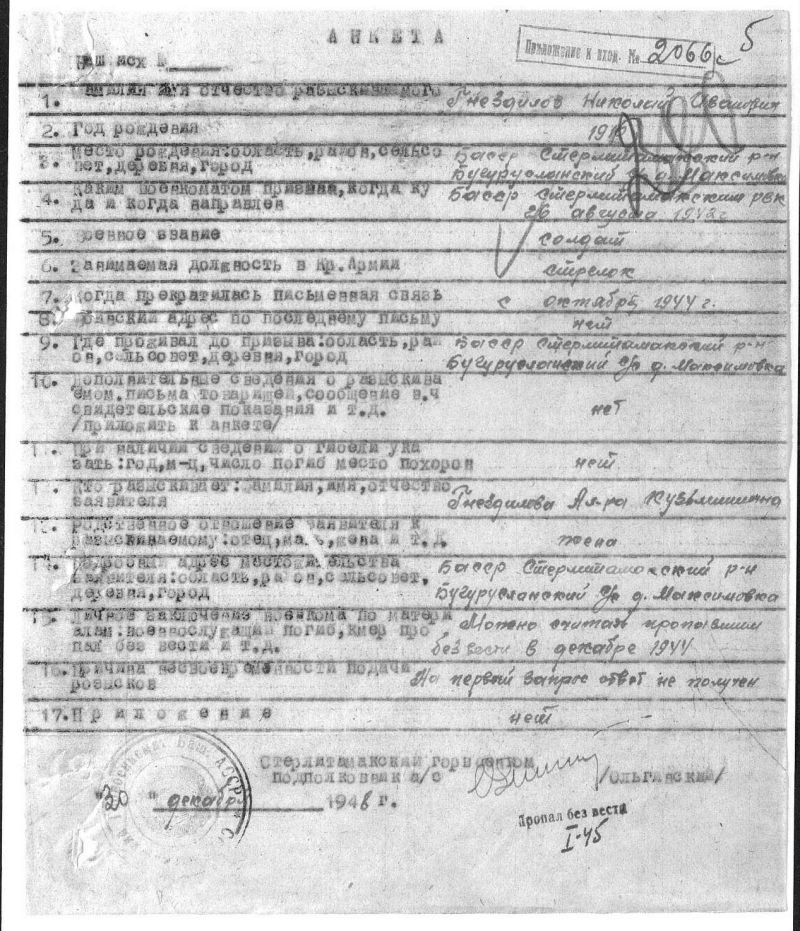 АНКЕТА
Приложение к вход. № 2066с
5
Наш исх №
1. Фамилия имя отчество разыскиваемого Гнездилов Николай Иванович
2. Год рождения
3. Место рождения:область,район,сельсо Басср Стерлитамакский р-н
вет,деревня,город Бугурусланский с/с д. Максимовка
4. Каким военкоматом призван,когда ку Басср Стерлитамакским рвк
да и когда направлен 26 августа
5. Военное звание солдат
6. Занимаемая должность в Кр.Армии стрелок
7. Когда прекратилась письменная связь с октября 1944 г.
8. адрес по последнему письму нет
9. Где проживал до призыва:область,рай Басср Стерлитамакский р-н
он,сельсовет,деревня,город Бугурусланский с/с д. Максимовка
10. Дополнительные сведения о разыскива
емом.письма товарищей,сообщение в.ч
свидетельские показания и т.д. нет
/приложить к анкете/
11. При наличии сведений о гибели ука
зать:год,м-ц,число погиб место похорон нет
12. Кто разыскивает: фамилия,имя,отчество
заявителя Гнездилова Ал-ра Кузьминична
13. Родственное отношение заявителя к
разыскиваемому:отец,мать,жена и т.д. жена
14. Подробный адрес местожительства Басср Стерлитамакский р-н
заявителя:область,район,сельсовет, Бугурусланский с/с д. Максимовка
деревня,город
15. Личное заключение военкома по матери Можно считать пропавшим
алам:военнослужащий погиб,умер про без вести в декабре 1944
пал без вести и т.д.
16. Причина несвоевременности подачи На первый запрос ответ не получен
розысков
17. Приложение нет
Стерлитамакский горвоенком
подполковник а/с /Ольгинский/
"30" декабря 1946 г.
Пропал без вести
I-45